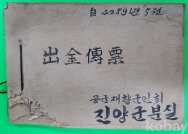 自 4289년 5월
出金傳票
공군재향군인회
진양군분실
kobay